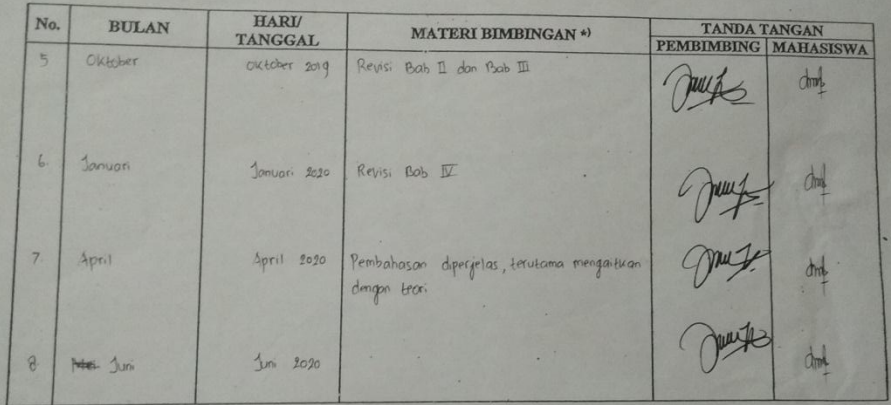 No. BULAN HARI/ TANGGAL MATERI BIMBINGAN *) TANDA TANGAN
PEMBIMBING MAHASISWA
5 Oktober Oktober 2019 Revisi Bab II dan Bab III
6. Januari Januari 2020 Revisi Bab IV
7. April April 2020 Pembahasan diperjelas, terutama mengaitkan
dengan teori
8. Juni Juni 2020